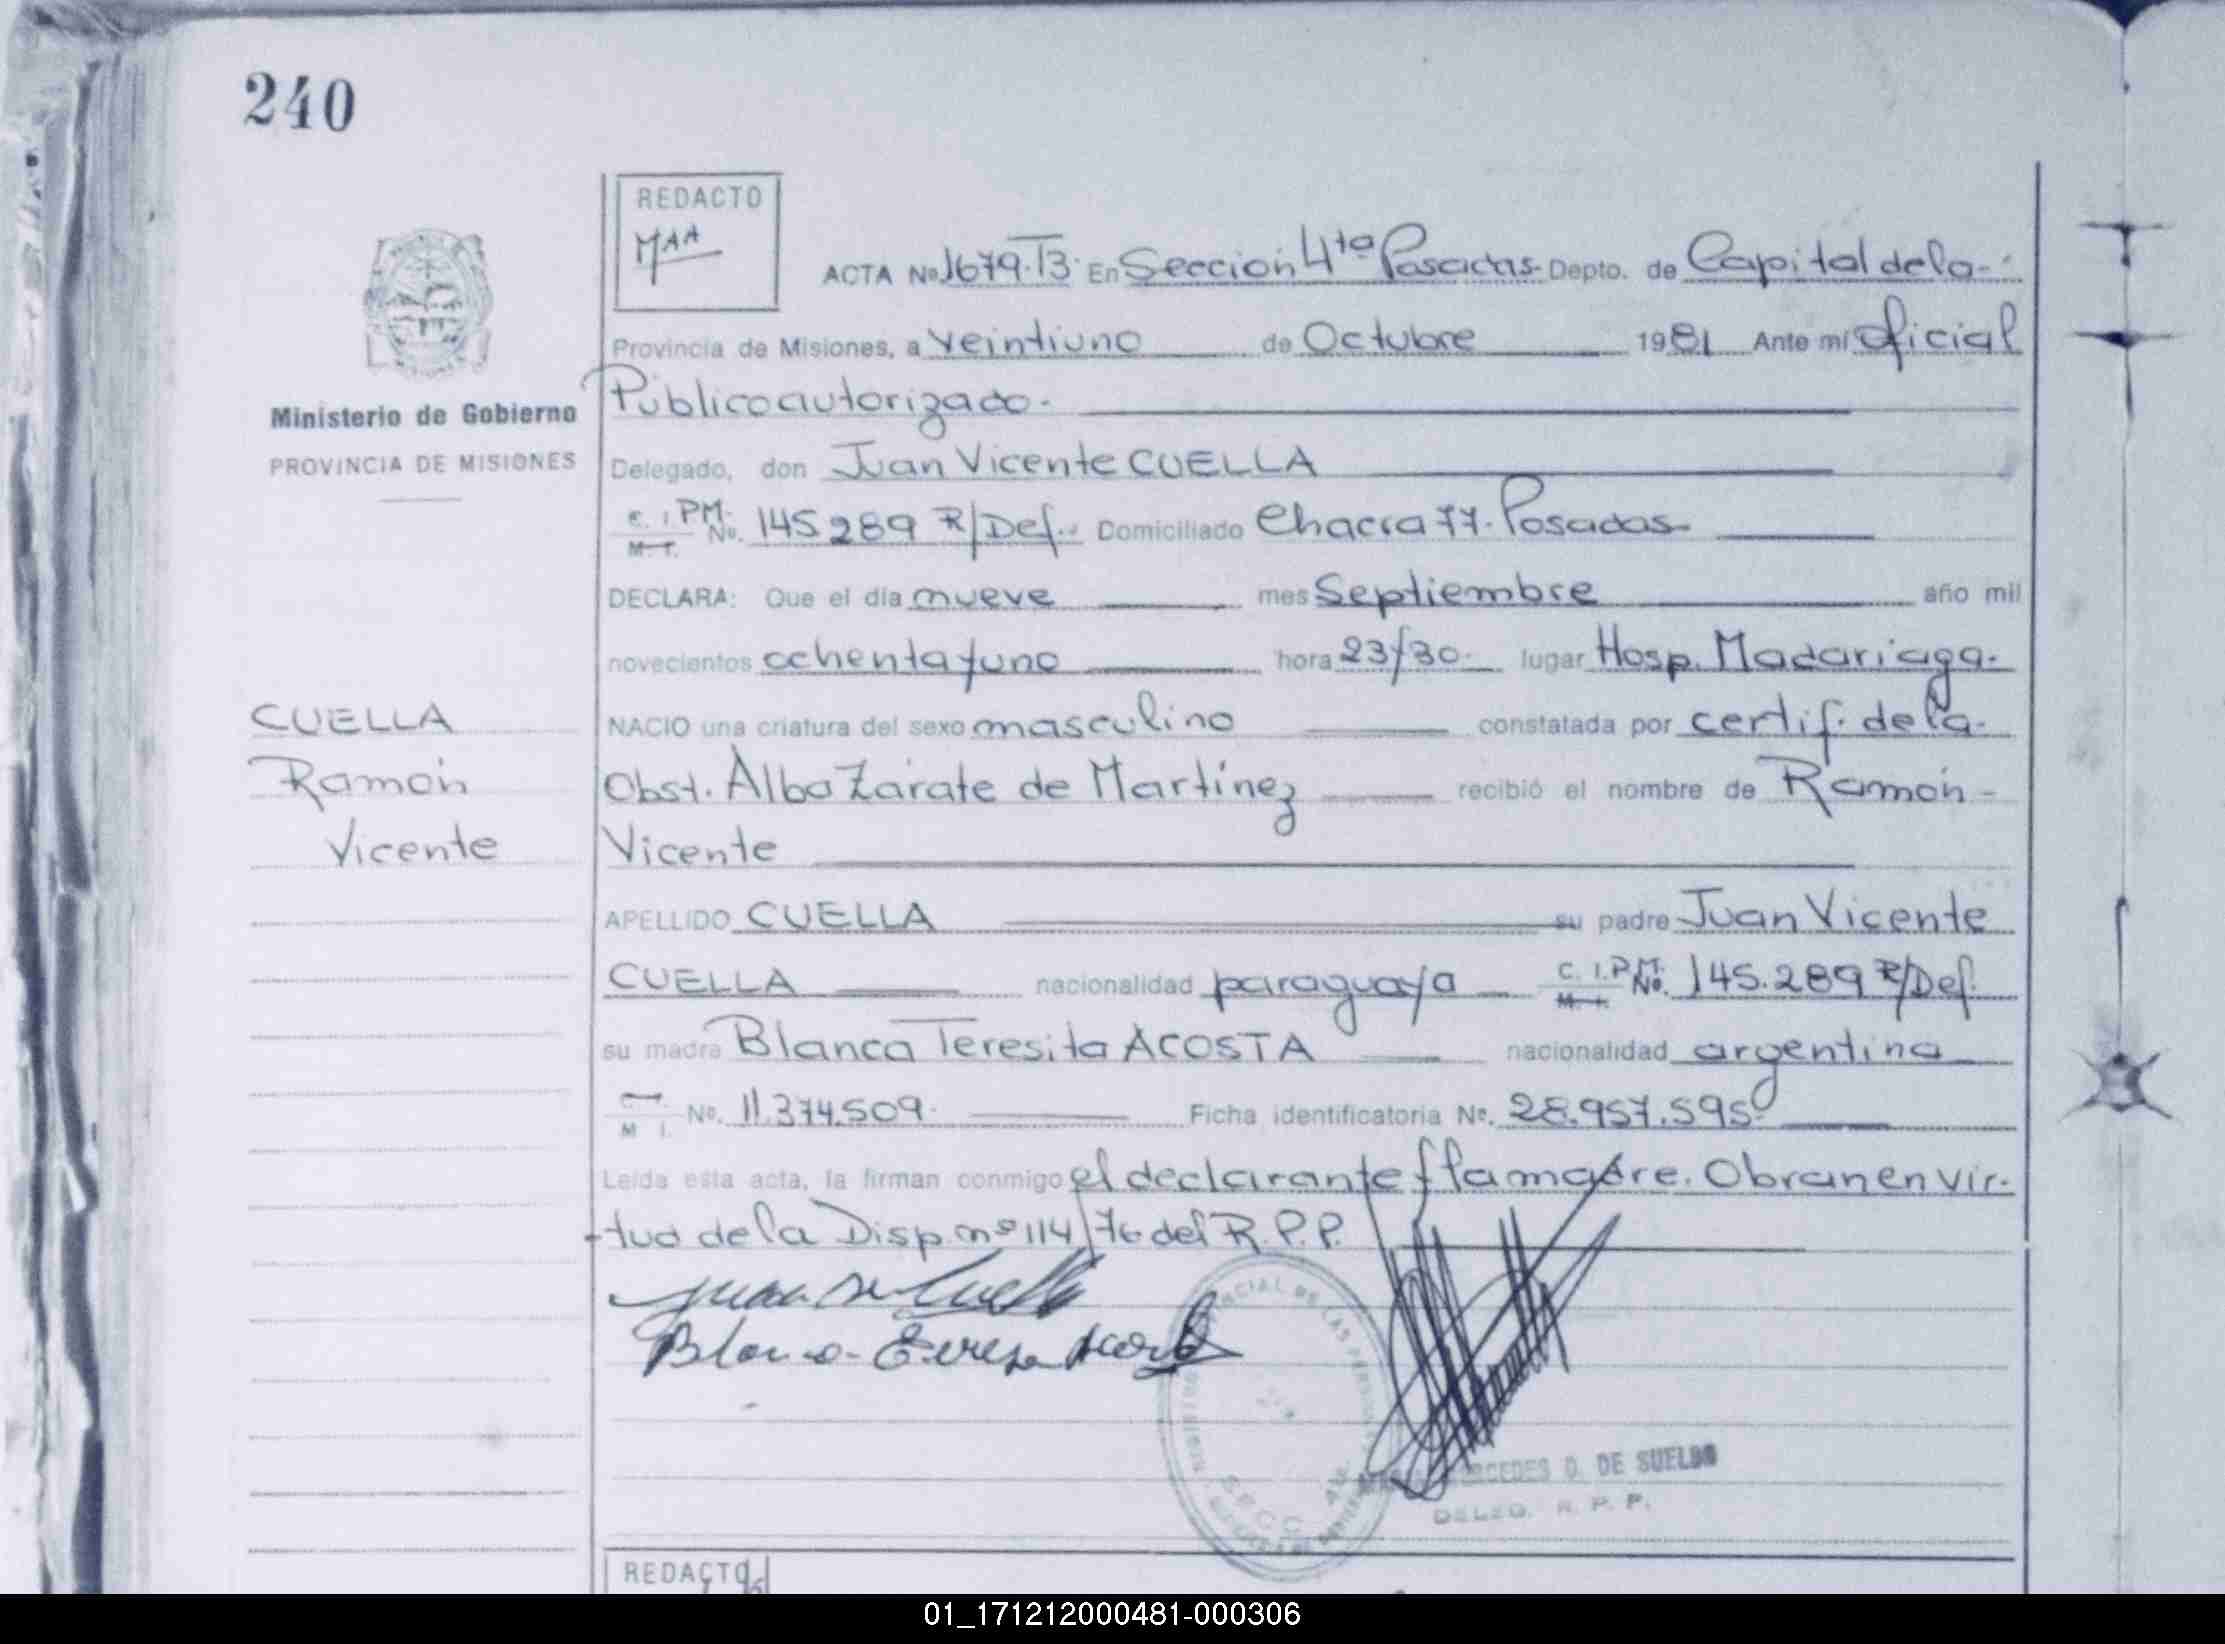 240
REDACTO
MAA
ACTA No. 1679. T3. En Sección 4ta Posadas- Depto. de Capital de la-
Provincia de Misiones, a veintiuno de Octubre 1981 Ante mí Oficial
Público autorizado.
Ministerio de Gobierno
PROVINCIA DE MISIONES
Delegado, don Juan Vicente CUELLA
C. I. PM. M. I. No. 145.289 R/Def.. Domiciliado Chacra 77. Posadas-
DECLARA: Que el día nueve mes Septiembre año mil
novecientos ochenta y uno hora 23/30. lugar Hosp. Madariaga.
CUELLA
Ramón
Vicente
NACIO una criatura del sexo masculino constatada por certif. de la-
Obst. Alba Zárate de Martínez recibió el nombre de Ramón-
Vicente
APELLIDO CUELLA su padre Juan Vicente
CUELLA nacionalidad paraguaya C. I. PM. M. I. No. 145.289 R/Def.
su madre Blanca Teresita ACOSTA nacionalidad argentina
C. I. M I. No. 11.374.509. Ficha identificatoria No. 28.957.595.
Leída esta acta, la firman conmigo el declarante y la madre. Obran en vir-
tud de la Disp. nº 114/76 del R.P.P.
Juan Cuella
Blanca Teresa Acosta
MERCEDES O. DE SUELDO
DELEG. R. P. P.
REDACTO
01_171212000481-000306